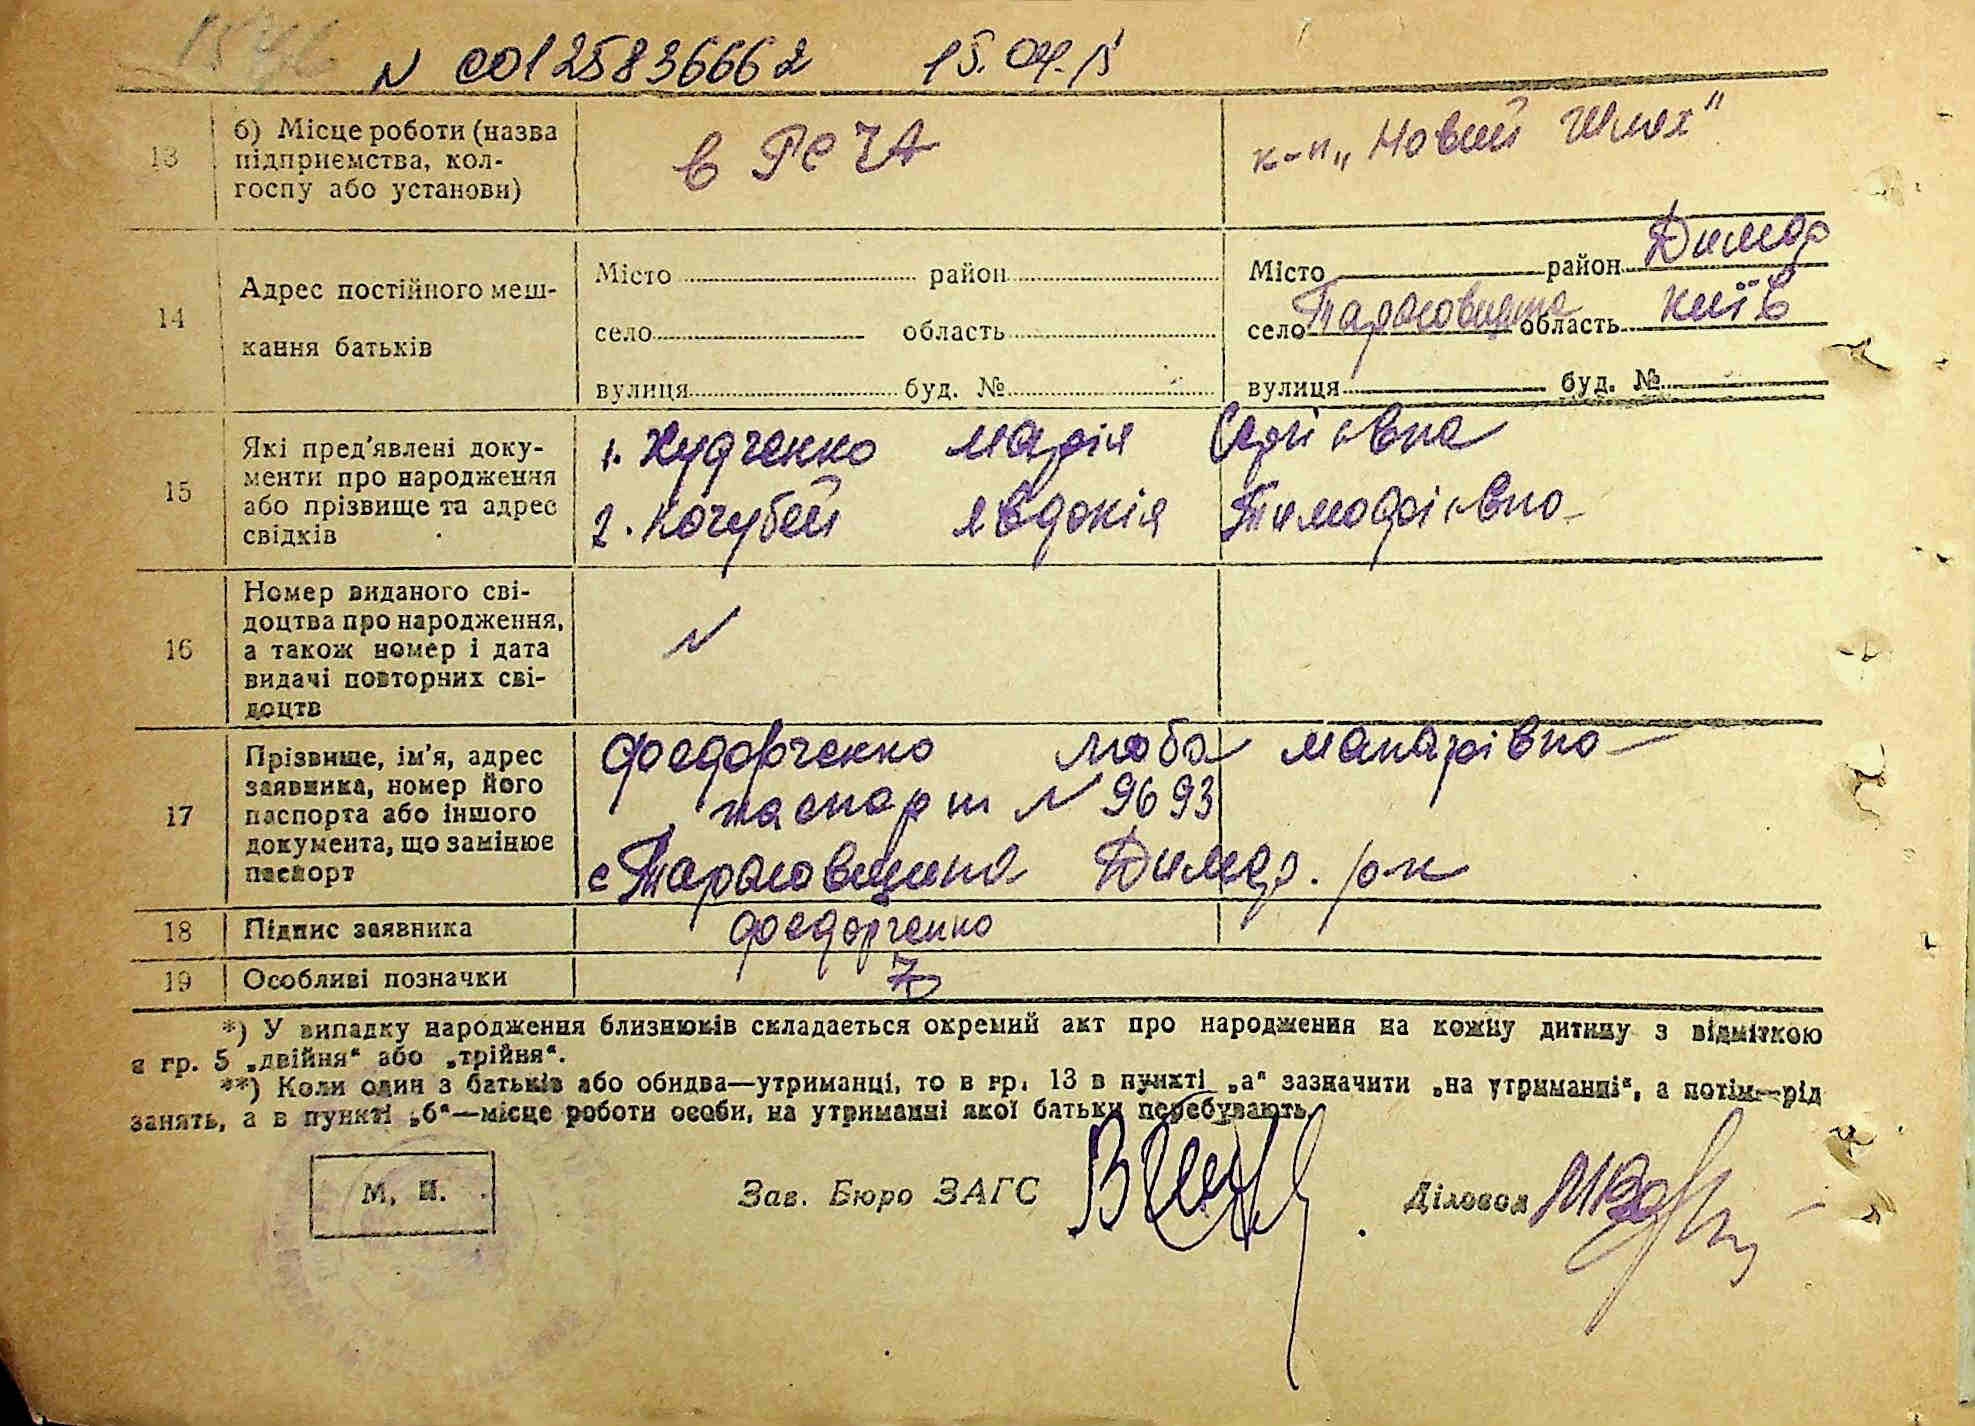 1546
N 00125836662 15.04.15
13 б) Місце роботи (назва підприємства, колгоспу або установи) в РСЧА к-п „Новий Шлях"
14 Адрес постійного мешкання батьків
Місто район Місто район Димер
село область село Тарасовщина область Київ
вулиця буд. № вулиця буд. №
15 Які пред'явлені документи про народження або прізвище та адрес свідків
1. Худченко Марія Сергіївна
2. Кочубей Явдокія Тимофіївна
16 Номер виданого свідоцтва про народження, а також номер і дата видачі повторних свідоцтв N
17 Прізвище, ім'я, адрес заявника, номер його паспорта або іншого документа, що замінює паспорт
Федорченко Люба Макарівна
паспорт N 9693
с Тарасовщина Димер. р-н
18 Підпис заявника Федорченко
19 Особливі позначки
*) У випадку народження близнюків складається окремий акт про народження на кожну дитину з відміткою
в гр. 5 „двійня" або „трійня".
**) Коли один з батьків або обидва—утриманці, то в гр. 13 в пункті „а" зазначити „на утриманні", а потім—рід
занять, а в пункті „б"—місце роботи особи, на утриманні якої батьки перебувають.
М. П. Зав. Бюро ЗАГС Діловод